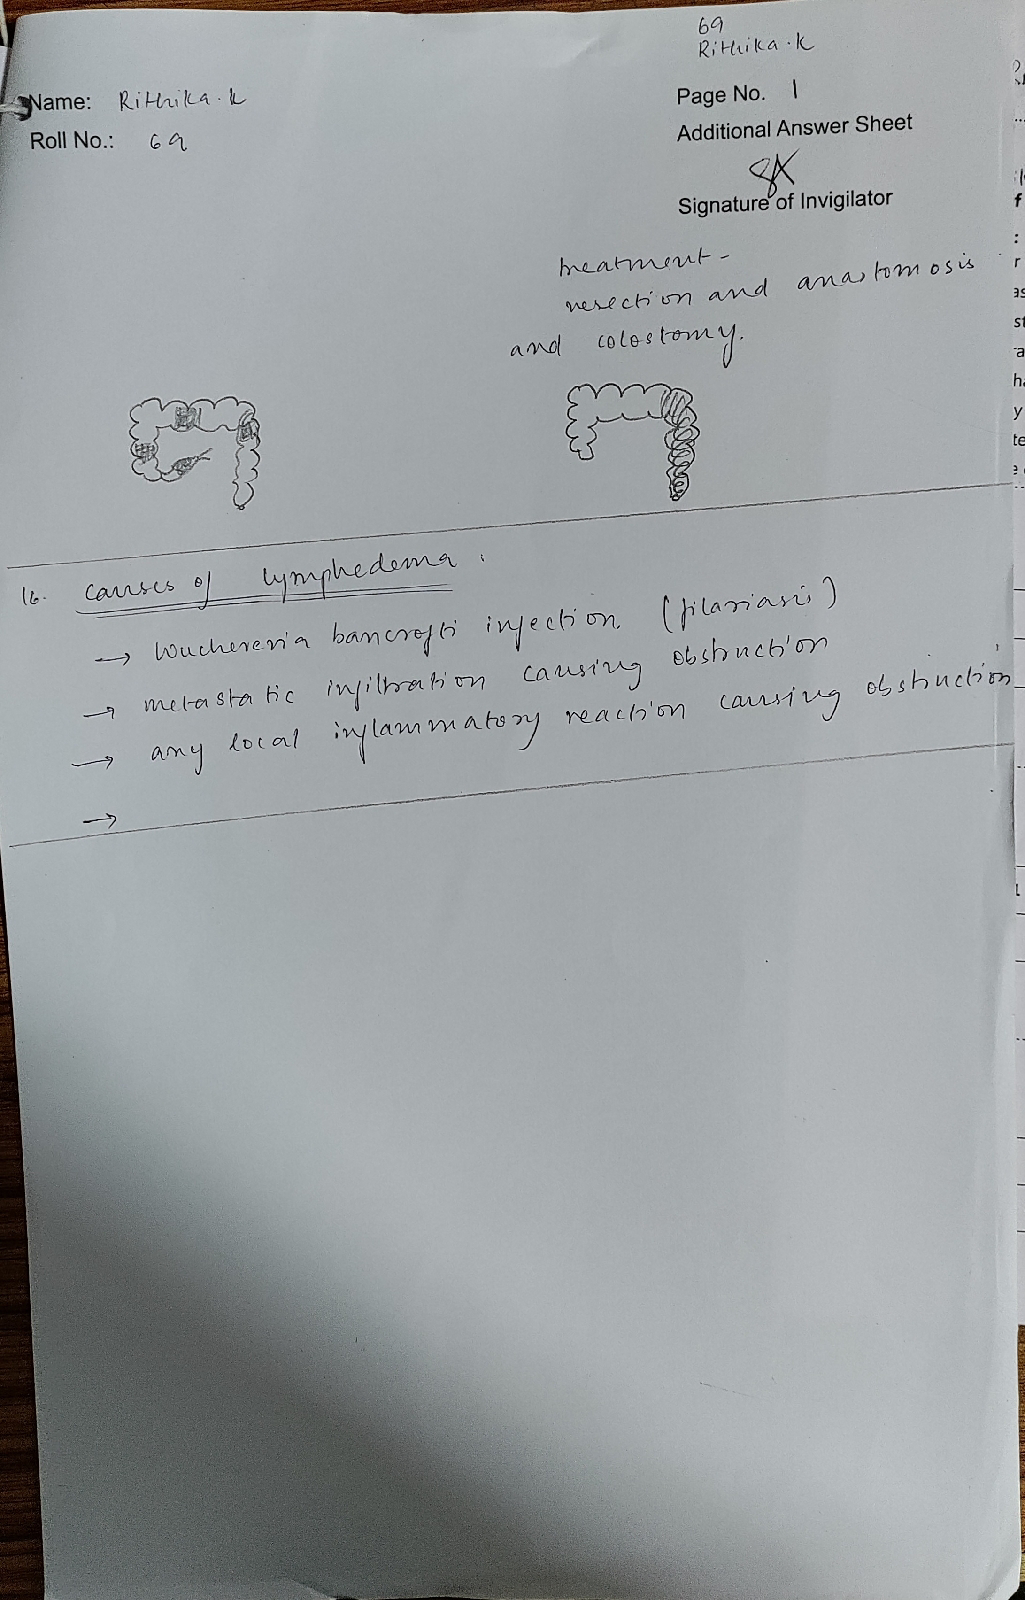 69
Rithika.k
Name: Rithika.k
Page No. 1
Roll No.: 69
Additional Answer Sheet
Signature of Invigilator
treatment -
resection and anastomosis
and colostomy.
16. causes of lymphedema.
→ Wuchereria bancrofti infection. (filariasis)
→ metastatic infiltration causing obstruction
→ any local inflammatory reaction causing obstruction
→